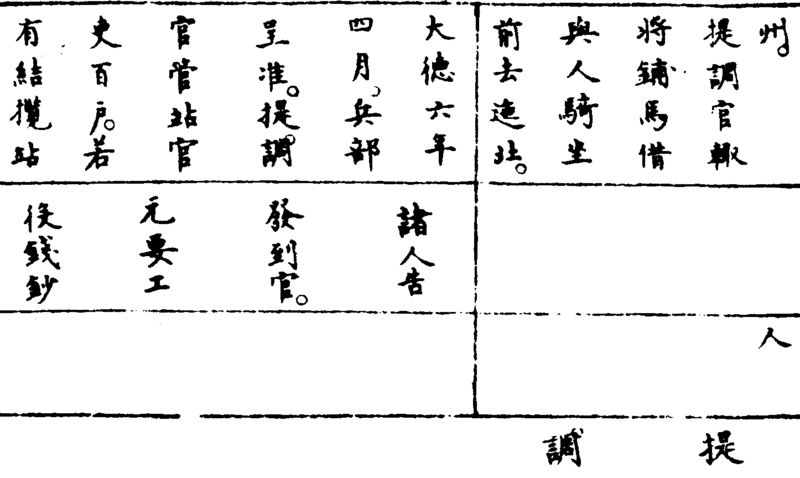 州。
提調官輙
將鋪馬借
與人騎坐
前去迤北。
人
大德六年
四月、兵部
呈准。提調
官管站官
吏百戶。若
有結攬站
諸人告
發到官。
元要工
役錢鈔
提調